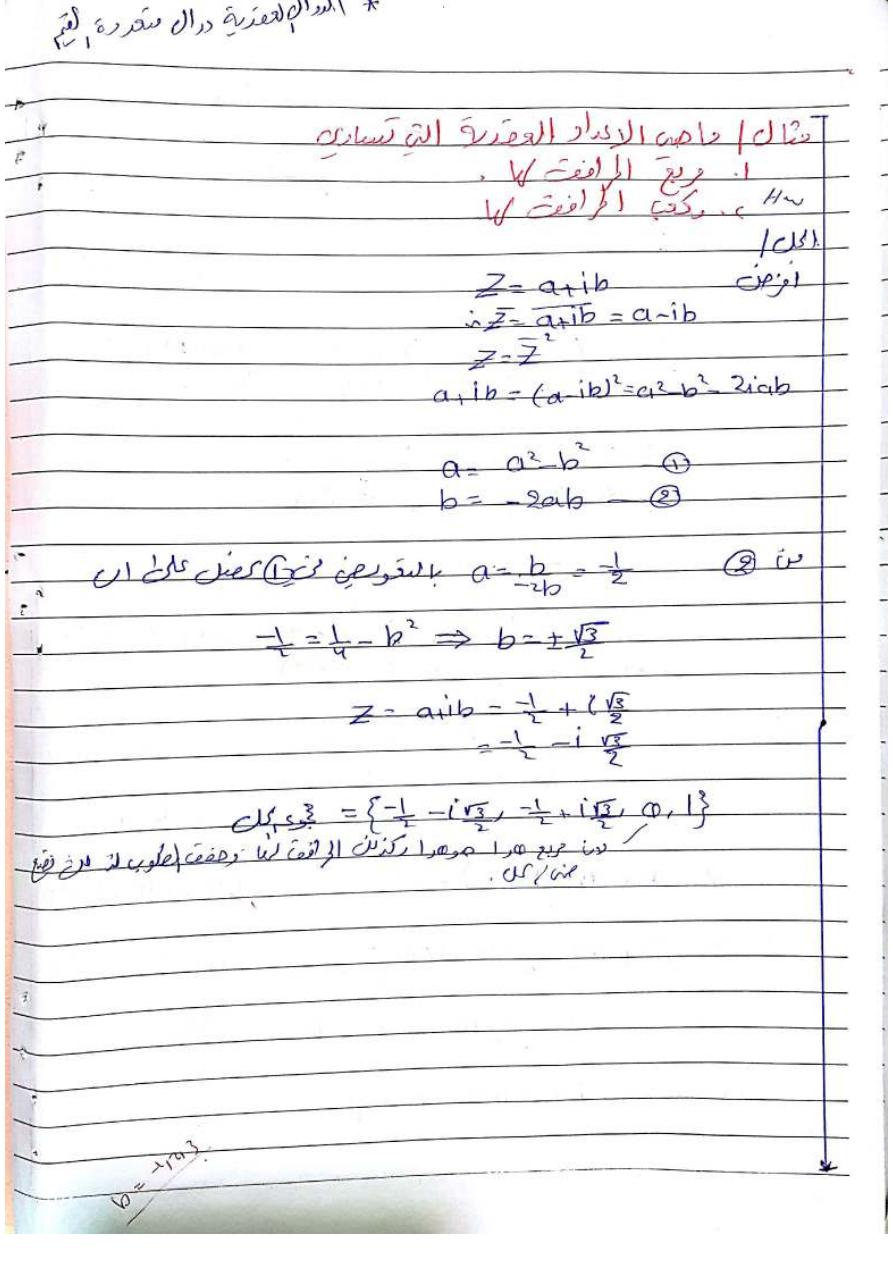 * الدوال العقدية دوال متعددة القيم
مثال / ماهي الاعداد العقدية التي تساوي
1. مربع المرافق لها .
Hw 2. مكعب المرافق لها
الحل /
افرض Z = a+ib
∴ \overline{Z} = \overline{a+ib} = a-ib
Z = \overline{Z}²
a+ib = (a-ib)² = a²-b²-2iab
a = a²-b² ①
b = -2ab — ②
من ② a = b/-2b = -1/2 بالتعويض في ① نحصل على ان
-1/2 = 1/4 - b² ⇒ b = ± √3/2
Z = a+ib = -1/2 + i √3/2
= -1/2 - i √3/2
مجموعة الحل = {-1/2 - i√3/2, -1/2 + i√3/2, 0, 1}
لان مربع هو كذلك المرافق لها المطلوب
ضمن الحل .
b =